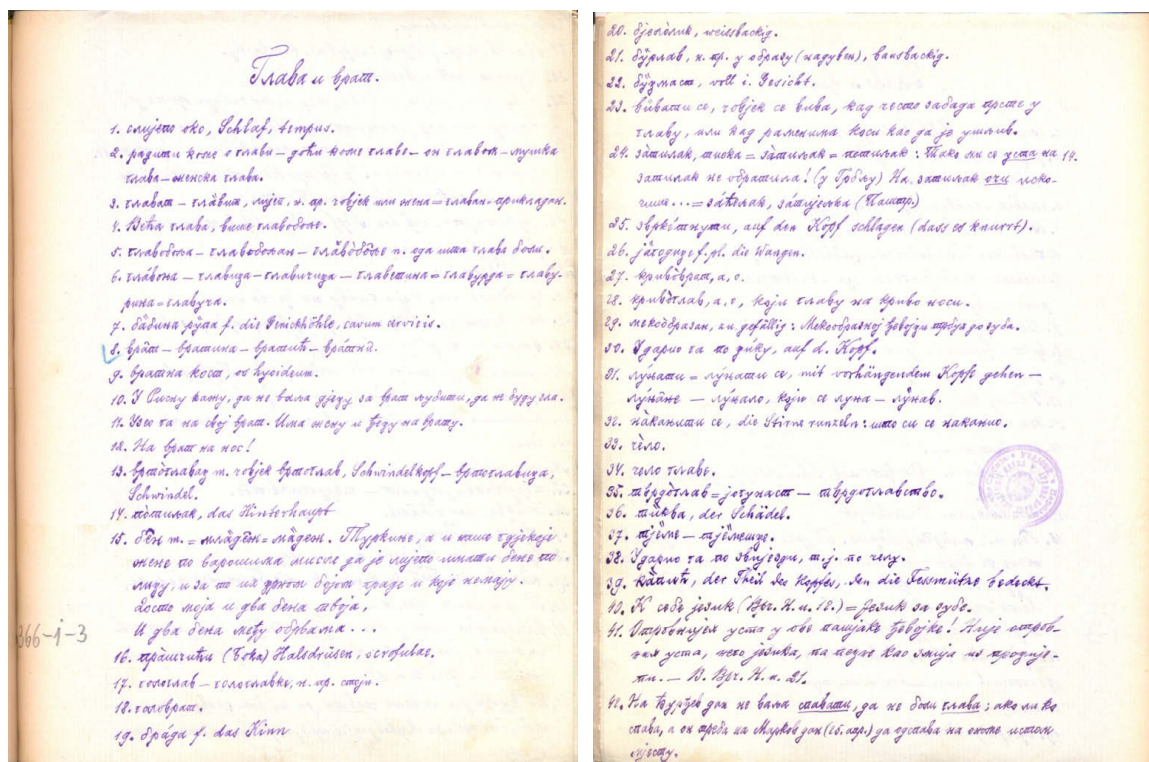 Глава и врат.
1. слијепо око, Schlaf, tempus.
2. радити коме о глави – доћи коме главе – он главом – мушка
глава – женска глава.
3. глават – главит, лијеп, н. пр. човјек или жена = главан – прикладан.
4. Већа глава, више главобоље.
5. главобоља – главобољан – главобоље n. ода шта глава боли.
6. главоња – главица – главичица – главетина = главурда = главу-
рина = главуча.
7. бабина рупа f. die Genickhöhle, cavum cervicis.
8. врат – вратина – вратић – вратни.
9. вратна кост, os hyoideum.
10. У Рисну кажу, да не ваља дјецу за врат љубити, да не буду зла.
11. Узео га на свој врат. Има жену и ђецу на врату.
12. На врат на нос!
13. вртоглавац m. човјек вртоглав, Schwindelkopf – вртоглавица,
Schwindel.
14. потиљак, das Hinterhaupt
15. бен m. = младеж = мадеж. Туркиње, а и наше гдјекоје
жене по варошима мисле да је лијепо имати бене по
лицу, и за то их црном бојом граде и које немају.
Досто моја и два бена твоја,
И два бена међу обрвама...
16. (Бока) Halsdrüsen, scrofulae.
17. гологлав – гологлавке, н. пр. стоји.
18. головрат.
19. брада f. das Kinn
366-j-3
20. бјелолик, weissbackig.
21. бурлав, н. пр. у образу (надувен), bausbackig.
22. буцмаст, voll i. Gesicht.
23. вивати се, човјек се вива, кад често забада прсте у
главу, или кад раменима коси као да је ушљив.
24. затиљак, тиока = затиљак = потиљак: Тако ми се уста на 14.
затиљак не обратила! (у Грбљу) На затиљак очи иско-
чит... = заћелак, затијелка (Паштр.)
25. зврк нути, auf den Kopf schlagen (dass es knurrt).
26. јагодице f. pl. die Wangen.
27. кривоврат, а, о.
28. кривоглав, а, о, који главу на криво носи.
29. мекообразан, zu gefällig: Мекообразној ђевојци трбух до зуба.
30. Ударио га по дику, auf d. Kopf.
31. луњати = луњати се, mit vorhängendem Kopfe gehen –
луњање – луњало, који се луња – луњав.
32. наканити се, die Stirne runzeln: што си се наканио.
33. чело.
34. чело главе.
35. тврдоглав = јогунаст – тврдоглавство.
36. тиква, der Schädel.
37. тјеме – тјемешце.
38. Ударио га по звијезди, т. ј. по челу.
39. der Theil des Kopfes, den die Fessmütze bedeckt.
40. К себе језик (Врч. Н. н. 12.) = Језик за зубе.
41. Отровнијех уста у ове пашјаке ђевојке! Није отров-
нијех уста, него језика, па пецне као змија из проције-
па. – В. Врч. Н. н. 21.
42. На Ђурђев дан не ваља спавати, да не боли глава; ако ли ко
спава, а он треба на Марков дан (25. апр.) да одспава на ономе истом
мјесту.